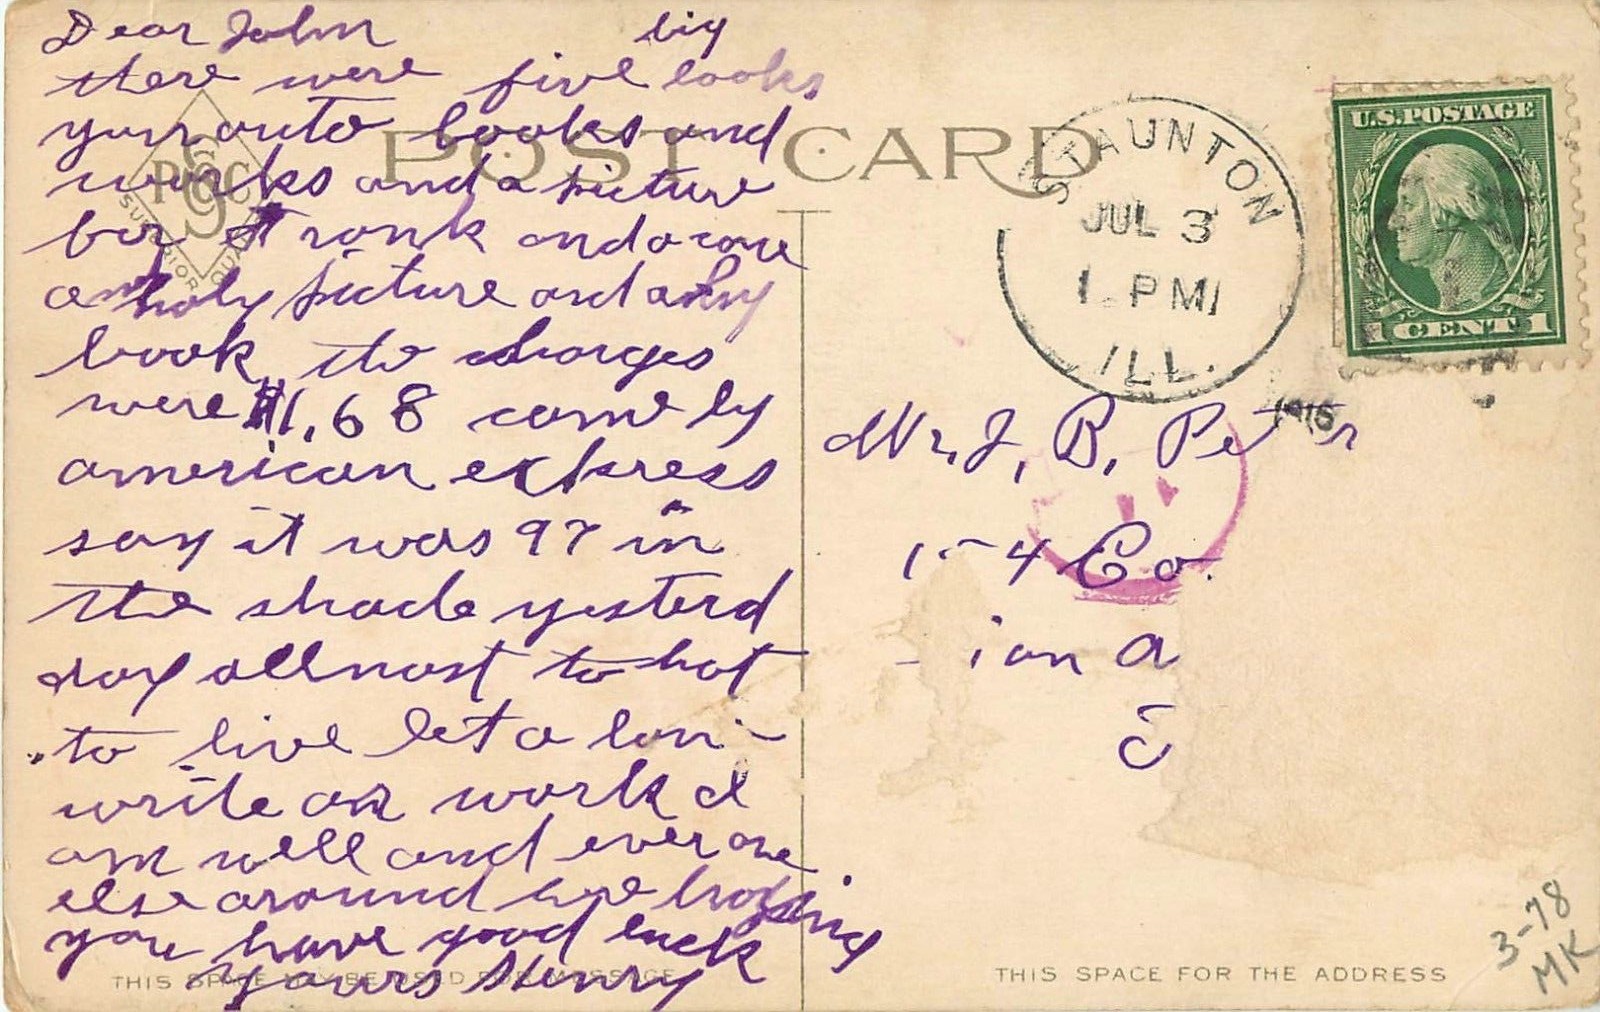 Dear John big
there were five books
your auto books and
works and a picture
ber trunk and a cane
and holy picture and a key
book the charges
were $1,68 come by
american express
say it was 97 in
the shade yesterd
day allmost to hot
to live let a lone
write or work I
am well and ever one
else around here hopping
you have good luck
yours Henry
THIS SPACE MAY BE USED FOR MESSAGE
POST CARD
SUPERIOR QUALITY
STAUNTON
JUL 3
1 PM
ILL.
1915
U.S. POSTAGE
1 CENT 1
Mr. J. B. Peter
154 Co.
ian a
THIS SPACE FOR THE ADDRESS
3-78
MK